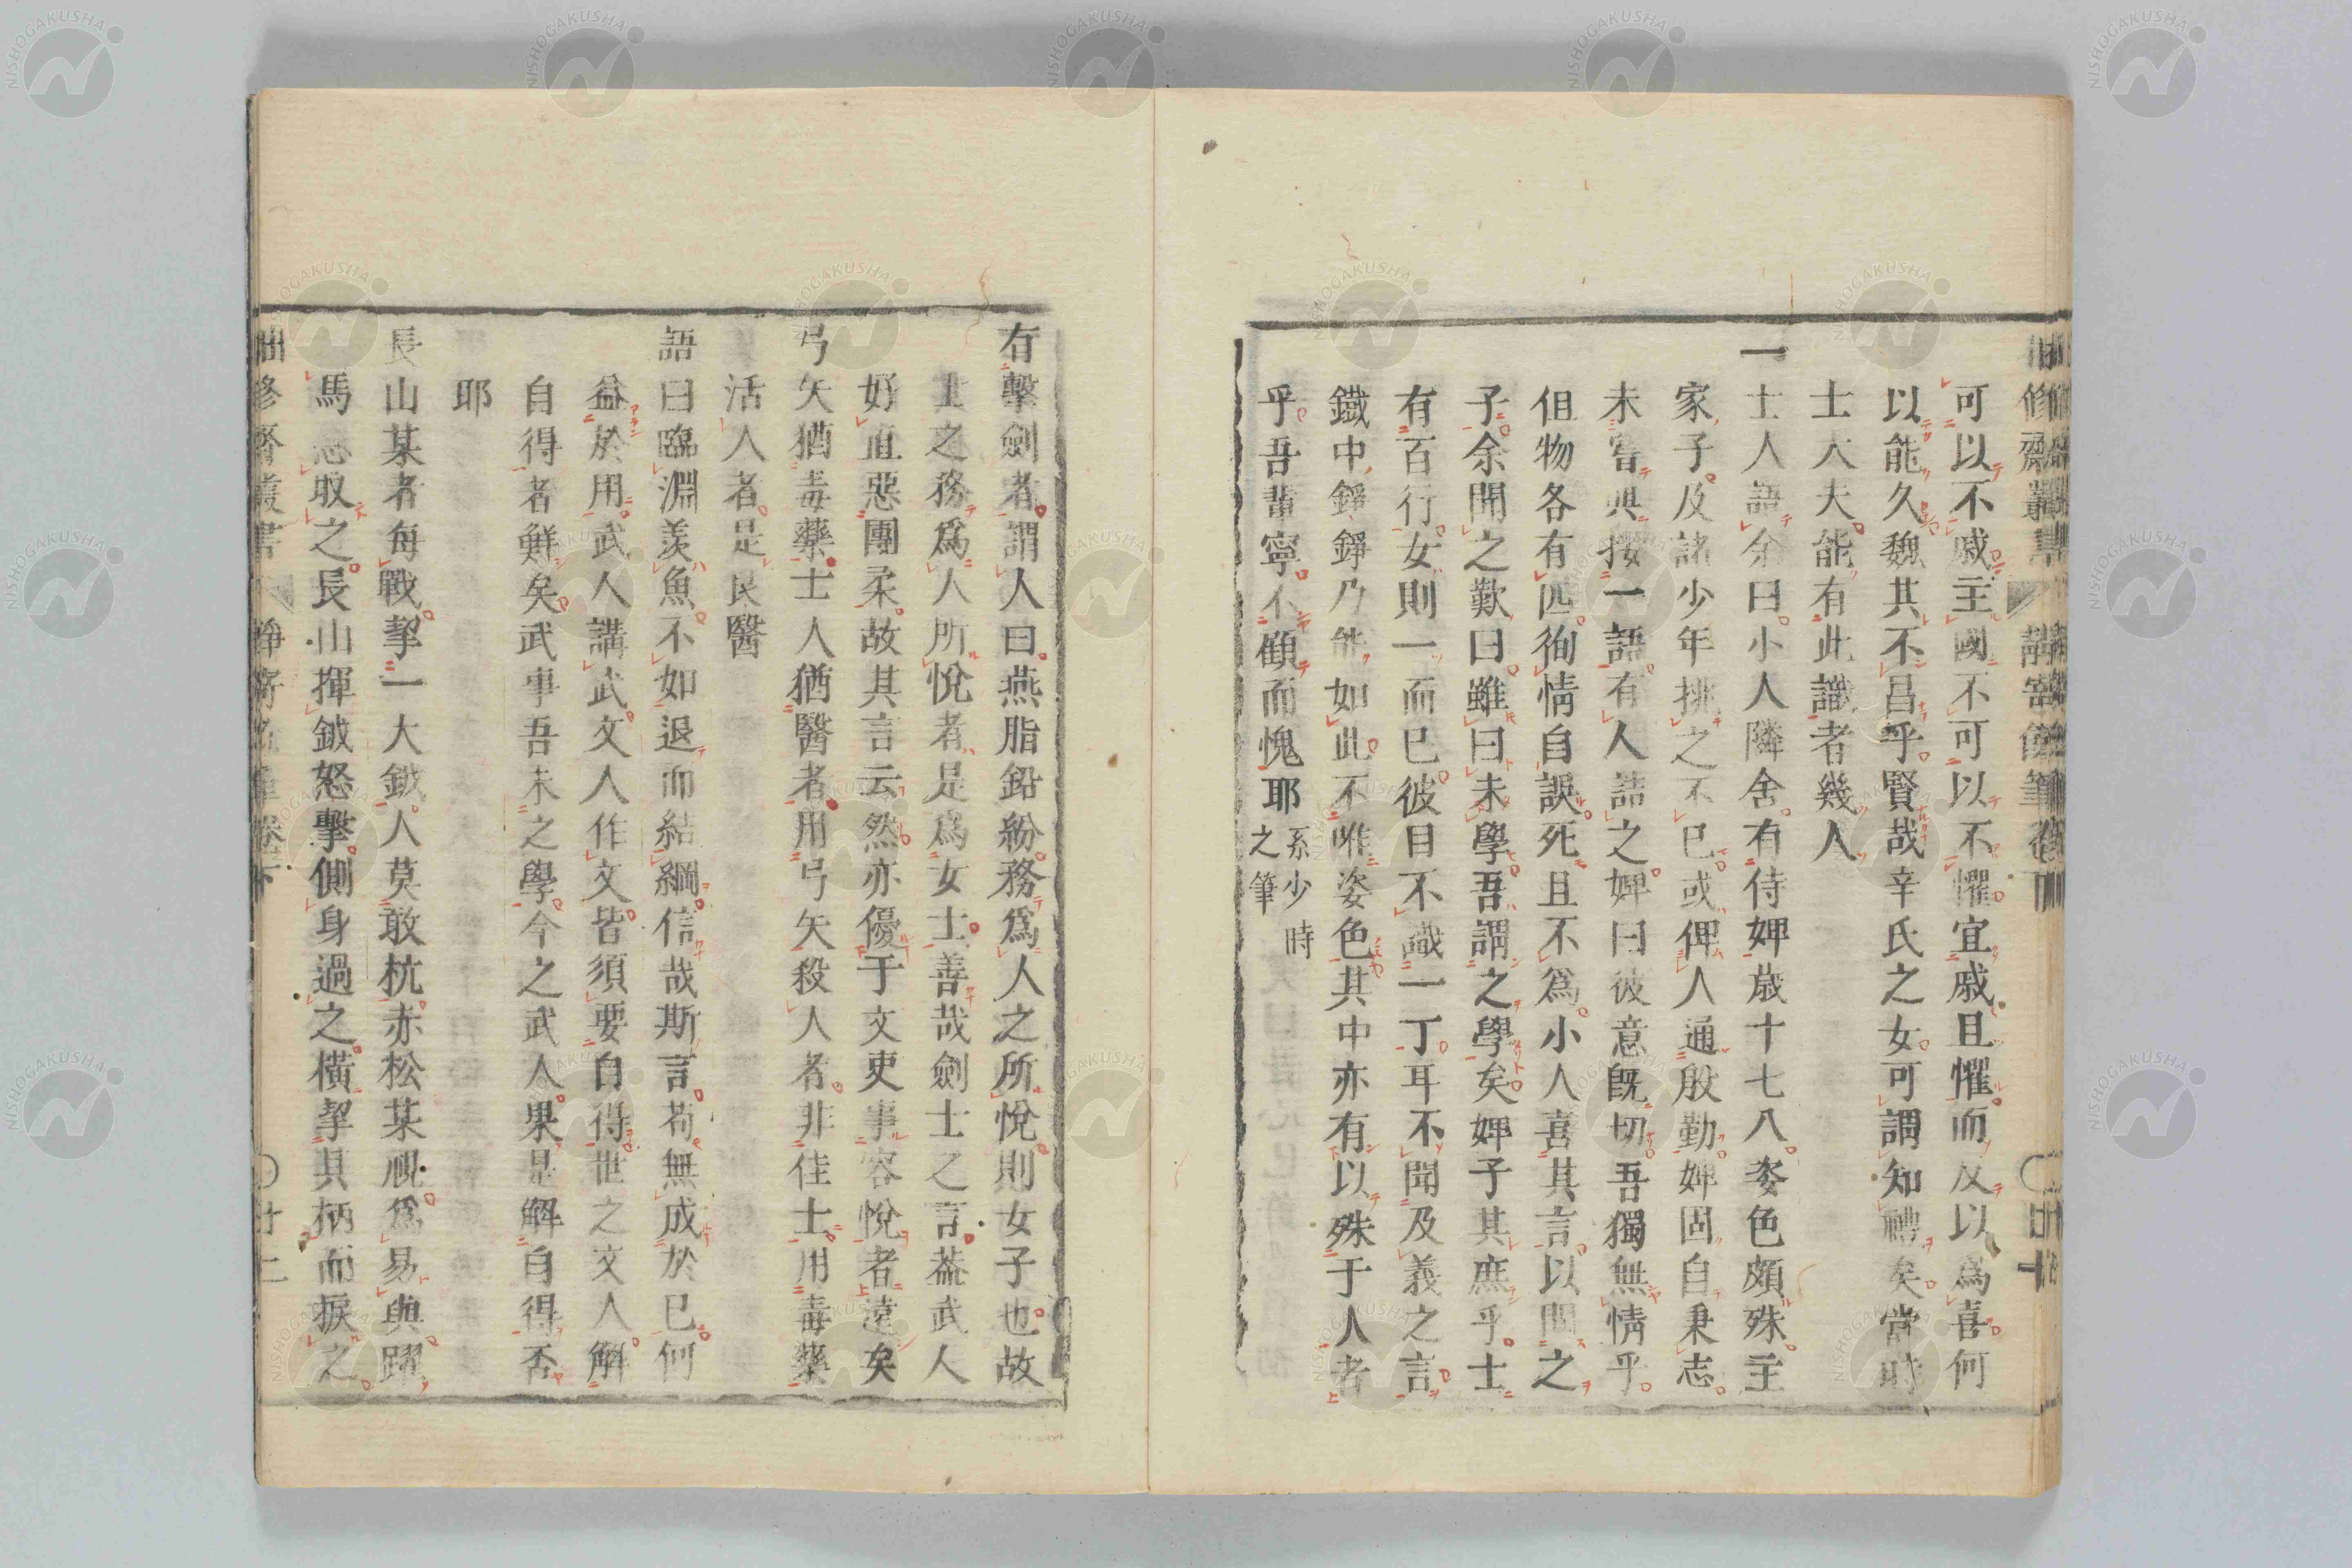 可以不戚主國不可以不懼宜戚且懼而反以爲喜何
以能久魏其不昌乎賢哉辛氏之女可謂知禮矣當時
士大夫能有此識者幾人
一士人語余曰小人隣舍有侍婢歳十七八姿色頗殊主
家子及諸少年挑之不已或俾人通殷勤婢固自秉志
未嘗與接一語有人詰之婢曰彼意既切吾獨無情乎
但物各有匹徇情自誤死且不爲小人喜其言以聞之
予余聞之歎曰雖曰未學吾謂之學矣婢子其庶乎士
有百行女則一而已彼目不識一丁耳不聞及義之言
鐵中錚錚乃能如此不唯姿色其中亦有以殊于人者
乎吾輩寧不顧而愧耶 系少時
之筆
有擊劍者謂人曰燕脂鉛紛務爲人之所悅則女子也故
士之務爲人所悅者是爲女士善哉劍士之言蓋武人
好直惡團柔故其言云然亦優于文吏事容悅者遠矣
弓矢猶毒藥士人猶醫者用弓矢殺人者非佳士用毒藥
活人者是良醫
語曰臨淵羨魚不如退而結綱信哉斯言苟無成於已何
益於用武人講武文人作文皆須要自得世之文人解
自得者鮮矣武事吾未之學今之武人果是解自得否
耶
長山某者每戰挈一大鉞人莫敢抗赤松某視爲易與躍
馬 取之長山揮鉞怒擊側身過之橫挈其柄而捩之
卷下
〇廿二
NISHOGAKUSHA